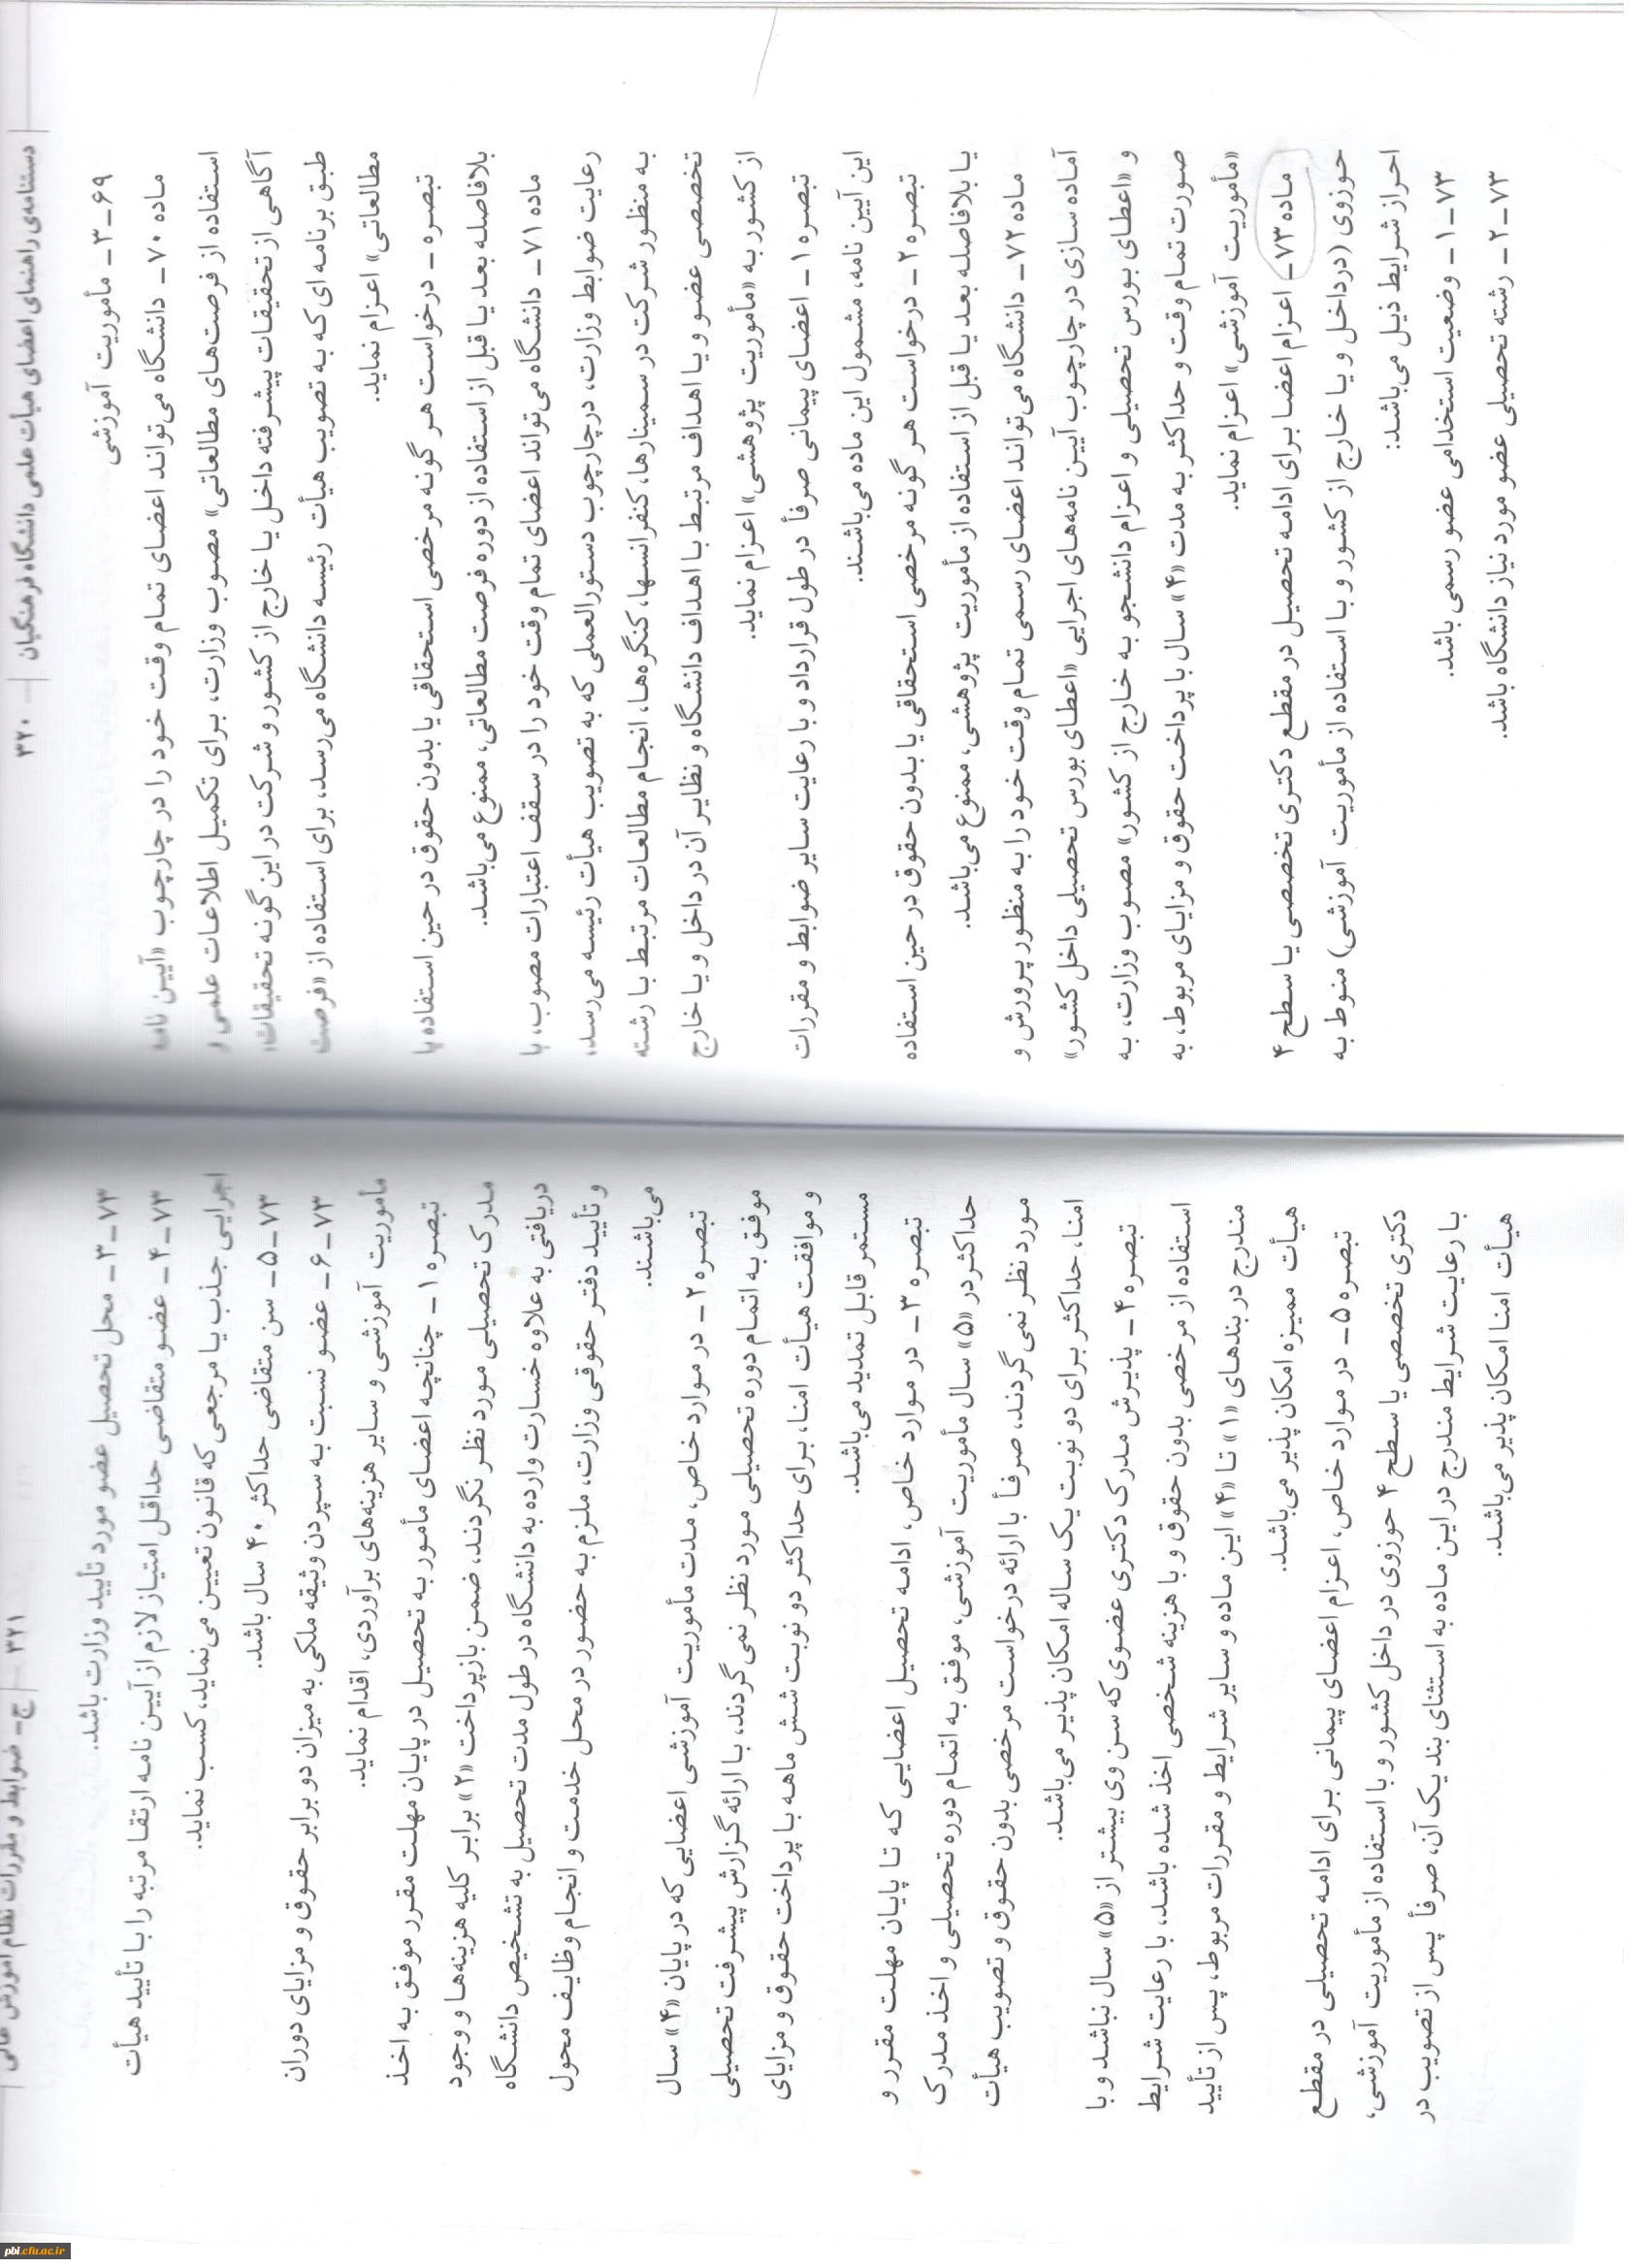 ۳۲۰ دستنامه‌ی راهنمای اعضای هیأت علمی دانشگاه فرهنگیان
۶۹ـ۳ـ مأموریت آموزشی
ماده ۷۰ـ دانشگاه می‌تواند اعضای تمام وقت خود را در چارچوب «آیین نامه
استفاده از فرصت‌های مطالعاتی» مصوب وزارت، برای تکمیل اطلاعات علمی و
آگاهی از تحقیقات پیشرفته داخل یا خارج از کشور و شرکت در این گونه تحقیقات،
طبق برنامه ای که به تصویب هیأت رئیسه دانشگاه می‌رسد، برای استفاده از «فرصت
مطالعاتی» اعزام نماید.
تبصره ـ درخواست هر گونه مرخصی استحقاقی یا بدون حقوق در حین استفاده یا
بلافاصله بعد یا قبل از استفاده از دوره فرصت مطالعاتی، ممنوع می‌باشد.
ماده ۷۱ـ دانشگاه می‌تواند اعضای تمام وقت خود را در سقف اعتبارات مصوب، با
رعایت ضوابط وزارت، در چارچوب دستورالعملی که به تصویب هیأت رئیسه می‌رسد،
به منظور شرکت در سمینارها، کنفرانسها، کنگره‌ها، انجام مطالعات مرتبط با رشته
تخصصی عضو و یا اهداف مرتبط با اهداف دانشگاه و نظایر آن در داخل و یا خارج
از کشور به «مأموریت پژوهشی» اعزام نماید.
تبصره ۱ـ اعضای پیمانی صرفاً در طول قرارداد و با رعایت سایر ضوابط و مقررات
این آیین نامه، مشمول این ماده می‌باشند.
تبصره ۲ـ درخواست هر گونه مرخصی استحقاقی یا بدون حقوق در حین استفاده
یا بلافاصله بعد یا قبل از استفاده از مأموریت پژوهشی، ممنوع می‌باشد.
ماده ۷۲ـ دانشگاه می‌تواند اعضای رسمی تمام وقت خود را به منظور پرورش و
آماده سازی در چارچوب آیین نامه‌های اجرایی «اعطای بورس تحصیلی داخل کشور»
و «اعطای بورس تحصیلی و اعزام دانشجو به خارج از کشور» مصوب وزارت، به
صورت تمام وقت و حداکثر به مدت «۴» سال با پرداخت حقوق و مزایای مربوط، به
«مأموریت آموزشی» اعزام نماید.
ماده ۷۳ـ اعزام اعضا برای ادامه تحصیل در مقطع دکتری تخصصی یا سطح ۴
حوزوی (در داخل و یا خارج از کشور و با استفاده از مأموریت آموزشی) منوط به
احراز شرایط ذیل می‌باشد:
۷۳ـ۱ـ وضعیت استخدامی عضو رسمی باشد.
۷۳ـ۲ـ رشته تحصیلی عضو مورد نیاز دانشگاه باشد.
ج- ضوابط و مقررات نظام آموزش عالی ۳۲۱
۷۳ـ۳ـ محل تحصیل عضو مورد تأیید وزارت باشد.
۷۳ـ۴ـ عضو متقاضی حداقل امتیاز لازم از آیین نامه ارتقا مرتبه را با تأیید هیأت
اجرایی جذب یا مرجعی که قانون تعیین می‌نماید، کسب نماید.
۷۳ـ۵ـ سن متقاضی حداکثر ۴۰ سال باشد.
۷۳ـ۶ـ عضو نسبت به سپردن وثیقه ملکی به میزان دو برابر حقوق و مزایای دوران
مأموریت آموزشی و سایر هزینه‌های برآوردی، اقدام نماید.
تبصره ۱ـ چنانچه اعضای مأمور به تحصیل در پایان مهلت مقرر موفق به اخذ
مدرک تحصیلی مورد نظر نگردند، ضمن بازپرداخت «۲» برابر کلیه هزینه‌ها و وجود
دریافتی به علاوه خسارت وارده به دانشگاه در طول مدت تحصیل به تشخیص دانشگاه
و تأیید دفتر حقوقی وزارت، ملزم به حضور در محل خدمت و انجام وظایف محول
می‌باشند.
تبصره ۲ـ در موارد خاص، مدت مأموریت آموزشی اعضایی که در پایان «۴» سال
موفق به اتمام دوره تحصیلی مورد نظر نمی گردند، با ارائه گزارش پیشرفت تحصیلی
و موافقت هیأت امنا، برای حداکثر دو نوبت شش ماهه با پرداخت حقوق و مزایای
مستمر قابل تمدید می‌باشد.
تبصره ۳ـ در موارد خاص، ادامه تحصیل اعضایی که تا پایان مهلت مقرر و
حداکثر در «۵» سال مأموریت آموزشی، موفق به اتمام دوره تحصیلی و اخذ مدرک
مورد نظر نمی گردند، صرفاً با ارائه درخواست مرخصی بدون حقوق و تصویب هیأت
امنا، حداکثر برای دو نوبت یک ساله امکان پذیر می‌باشد.
تبصره ۴ـ پذیرش مدرک دکتری عضوی که سن وی بیشتر از «۵» سال نباشد و با
استفاده از مرخصی بدون حقوق و با هزینه شخصی اخذ شده باشد، با رعایت شرایط
مندرج در بندهای «۱» تا «۴» این ماده و سایر شرایط و مقررات مربوط، پس از تأیید
هیأت ممیزه امکان پذیر می‌باشد.
تبصره ۵ـ در موارد خاص، اعزام اعضای پیمانی برای ادامه تحصیلی در مقطع
دکتری تخصصی یا سطح ۴ حوزوی در داخل کشور و با استفاده از مأموریت آموزشی،
با رعایت شرایط مندرج در این ماده به استثنای بند یک آن، صرفاً پس از تصویب در
هیأت امنا امکان پذیر می‌باشد.
pbi.cfu.ac.ir